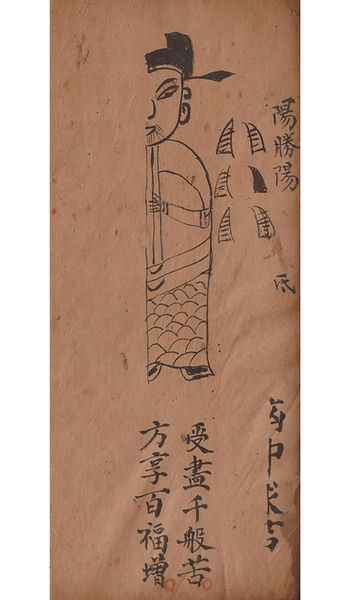 陽勝陽
受盡千般苦
方享百福增